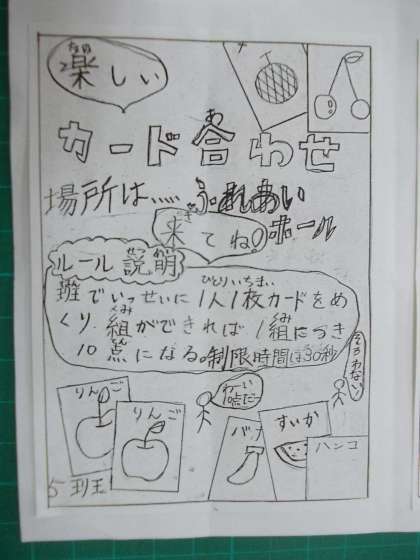 楽しい
カード合わせ
場所は……ふれあい
ホール
来てね!
ルール説明
班でいっせいに1人1枚カードをめ
くり組ができれば1組につき
10点になる。制限時間は30秒
そろわない!
わーい
10点だー
りんご
りんご
バナナ
すいか
ハンコ
5班